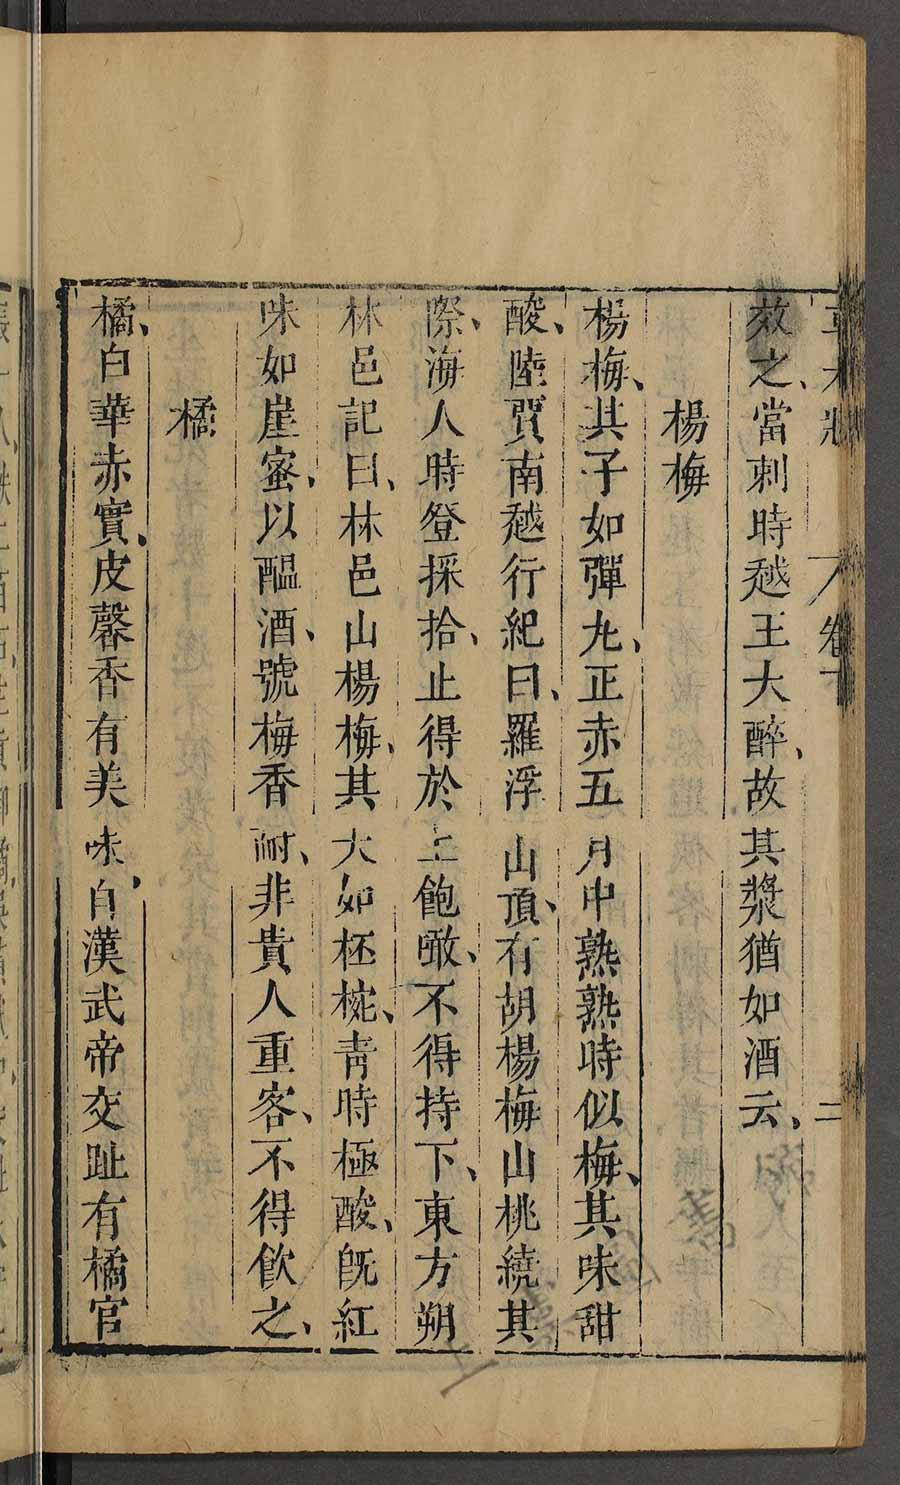 草木狀 卷下 二
效之、當刺時越王大醉、故其漿猶如酒云、
楊梅
楊梅、其子如彈丸、正赤五月中熟熟時似梅、其味甜
酸、陸賈南越行紀曰、羅浮山頂、有胡楊梅山桃繞其
際、海人時登採拾、止得於上飽噉、不得持下、東方朔
林邑記曰、林邑山楊梅、其大如杯椀、靑時極酸、旣紅
味如崖蜜、以醞酒、號梅香酎、非貴人重客、不得飮之、
橘
橘、白華赤實、皮馨香有美味、自漢武帝交趾有橘官